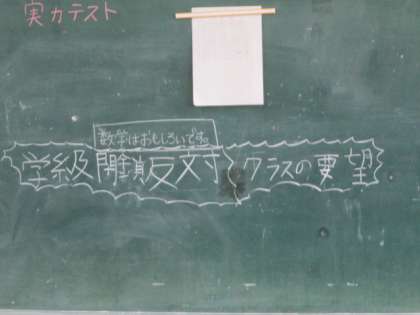 実力テスト
数学はおもしろいです。
学級閉鎖反対
クラスの要望